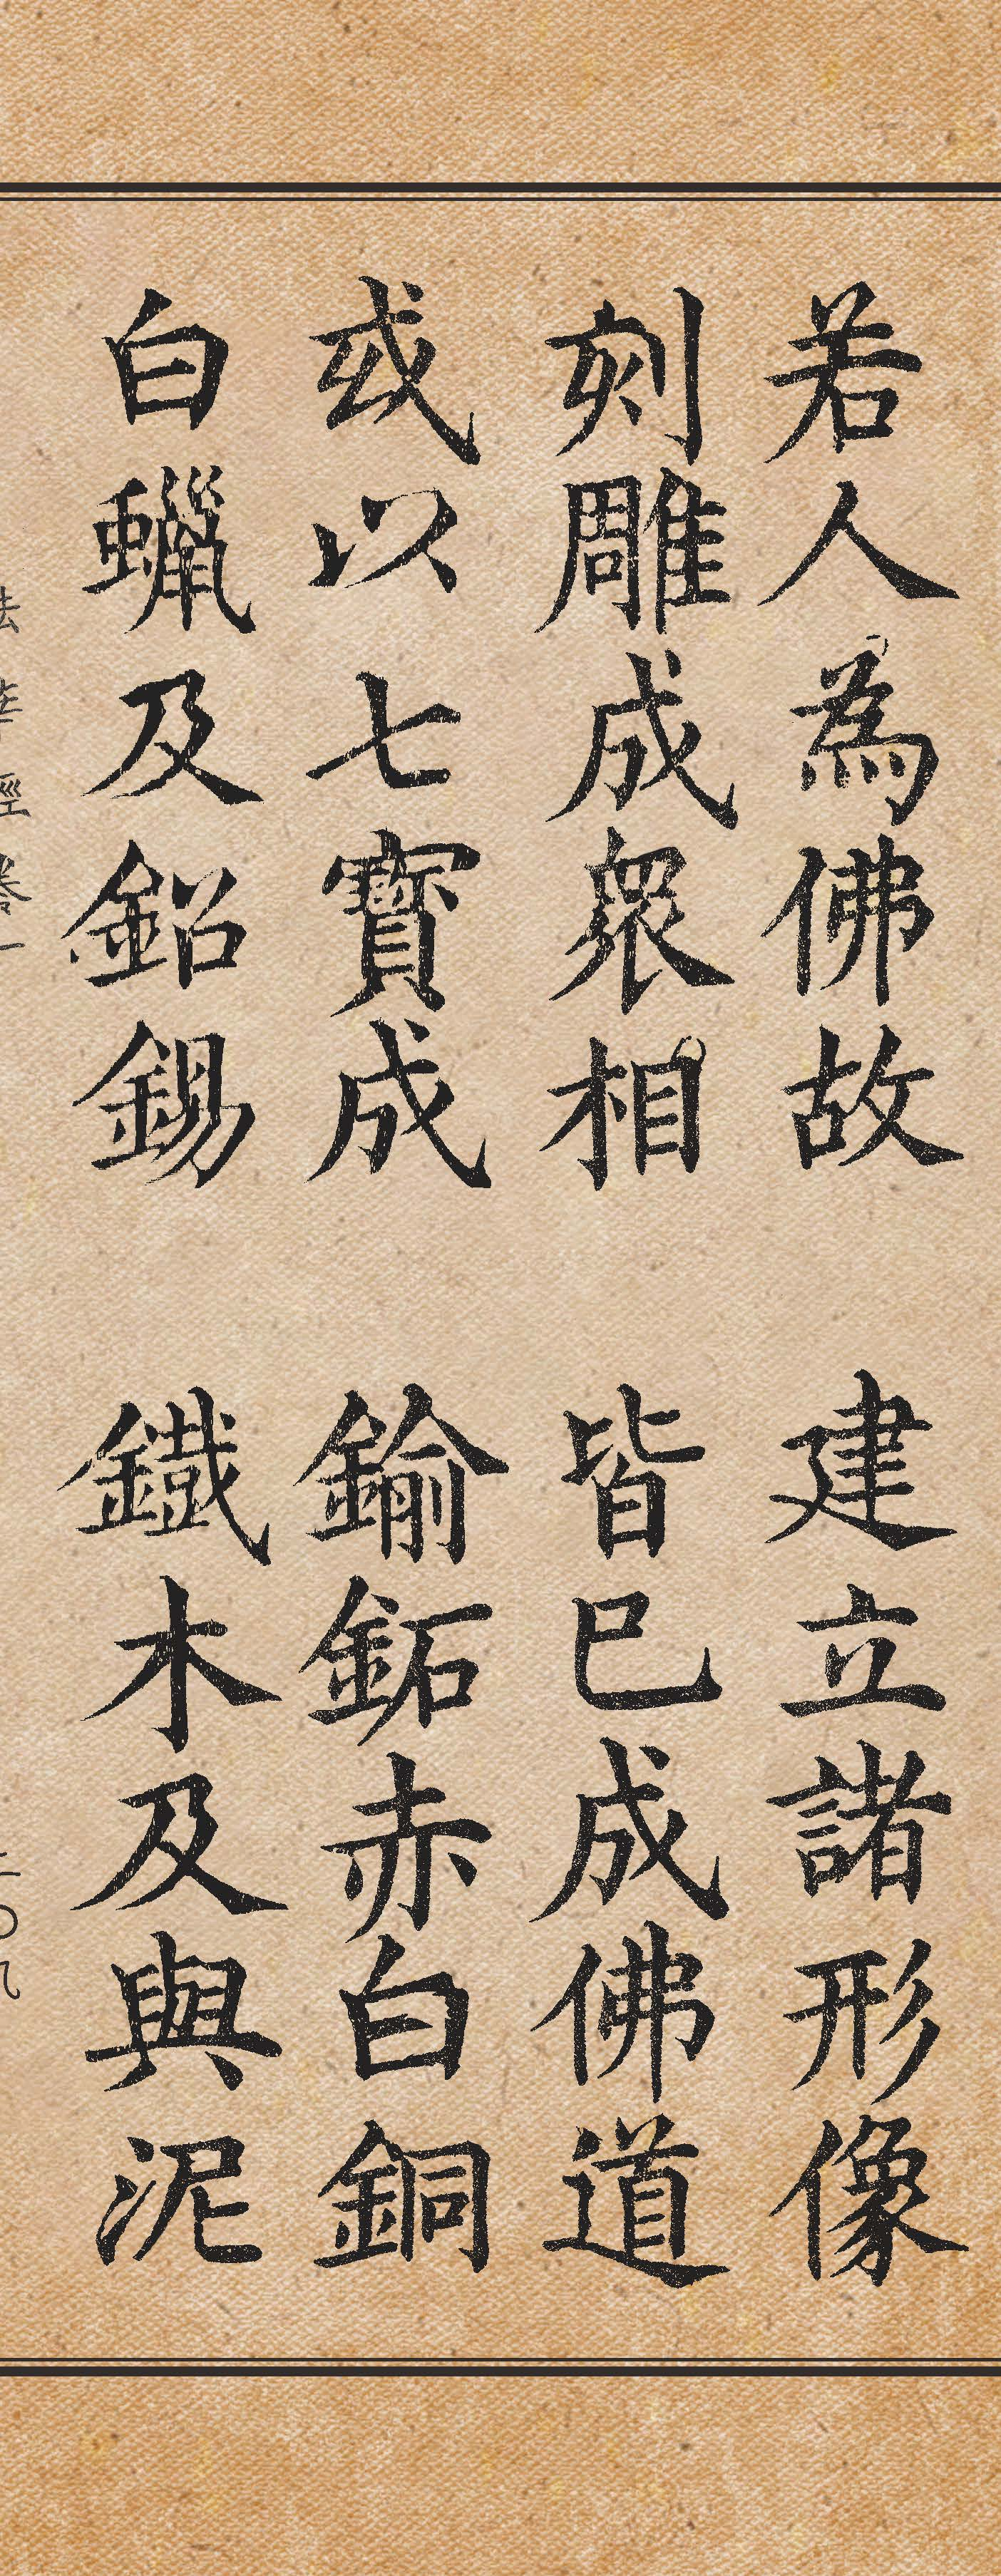 若人為佛故 建立諸形像
刻雕成眾相 皆已成佛道
或以七寶成 鍮鉐赤白銅
白蠟及鉛錫 鐵木及與泥
法華經卷一 二〇九